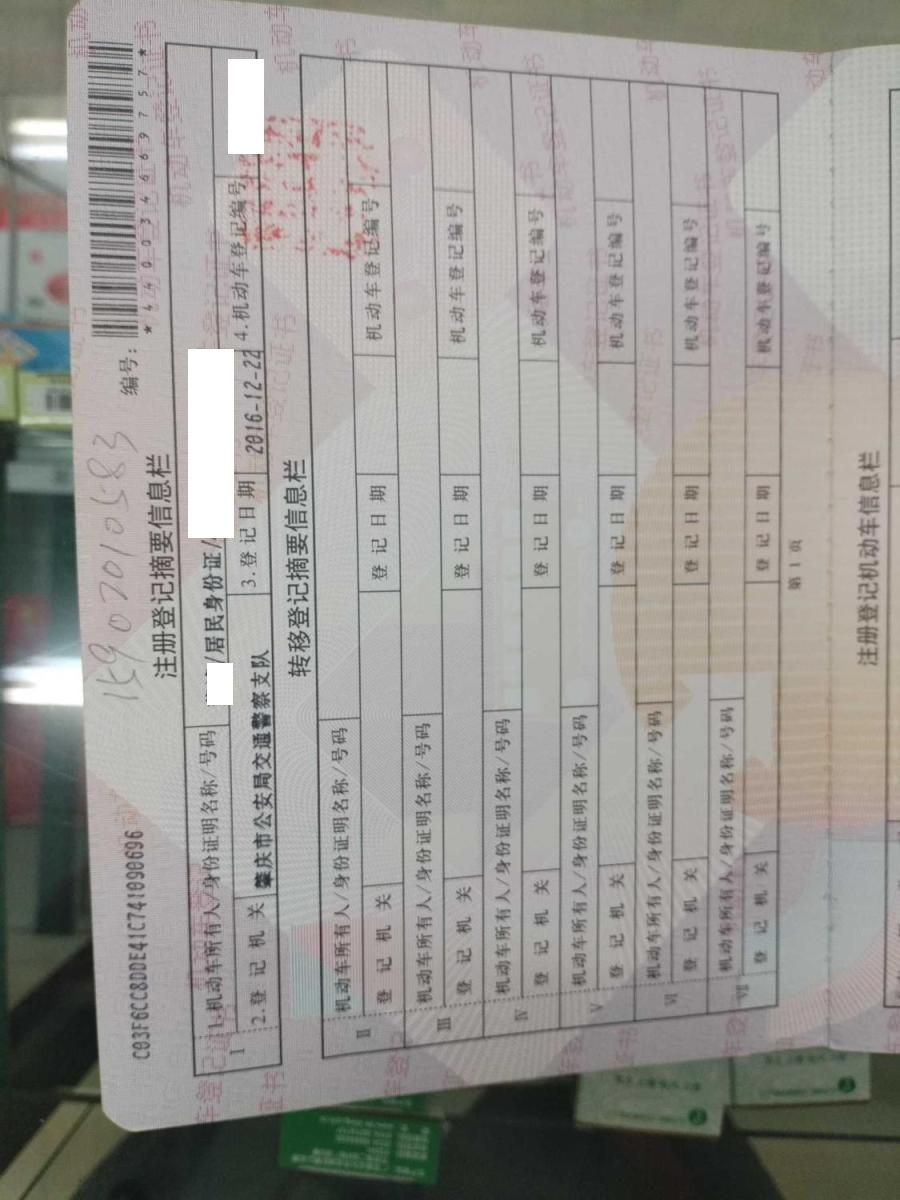 C03F6CC8DDE41C741090696
159070 10583
编号:
*440034669757*
注册登记摘要信息栏
I
1.机动车所有人/身份证明名称/号码
/居民身份证/
2.登记机关
肇庆市公安局交通警察支队
3.登记日期
2016-12-22
4.机动车登记编号
转移登记摘要信息栏
II
机动车所有人/身份证明名称/号码
登记机关 登记日期 机动车登记编号
III
机动车所有人/身份证明名称/号码
登记机关 登记日期 机动车登记编号
IV
机动车所有人/身份证明名称/号码
登记机关 登记日期 机动车登记编号
V
机动车所有人/身份证明名称/号码
登记机关 登记日期 机动车登记编号
VI
机动车所有人/身份证明名称/号码
登记机关 登记日期 机动车登记编号
VII
机动车所有人/身份证明名称/号码
登记机关 登记日期 机动车登记编号
第1页
注册登记机动车信息栏